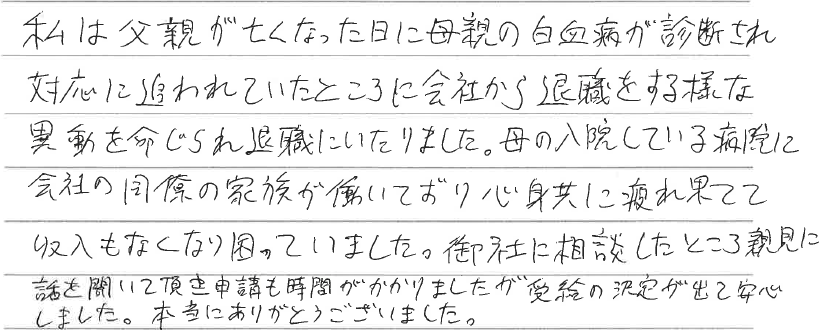 私は父親が亡くなった日に母親の白血病が診断され
対応に追われていたところに会社から退職をする様な
異動を命じられ退職にいたりました。母の入院している病院に
会社の同僚の家族が働いており心身共に疲れ果てて
収入もなくなり困っていました。御社に相談したところ親見に
話を聞いて頂き申請も時間がかかりましたが受給の決定が出て安心
しました。本当にありがとうございました。